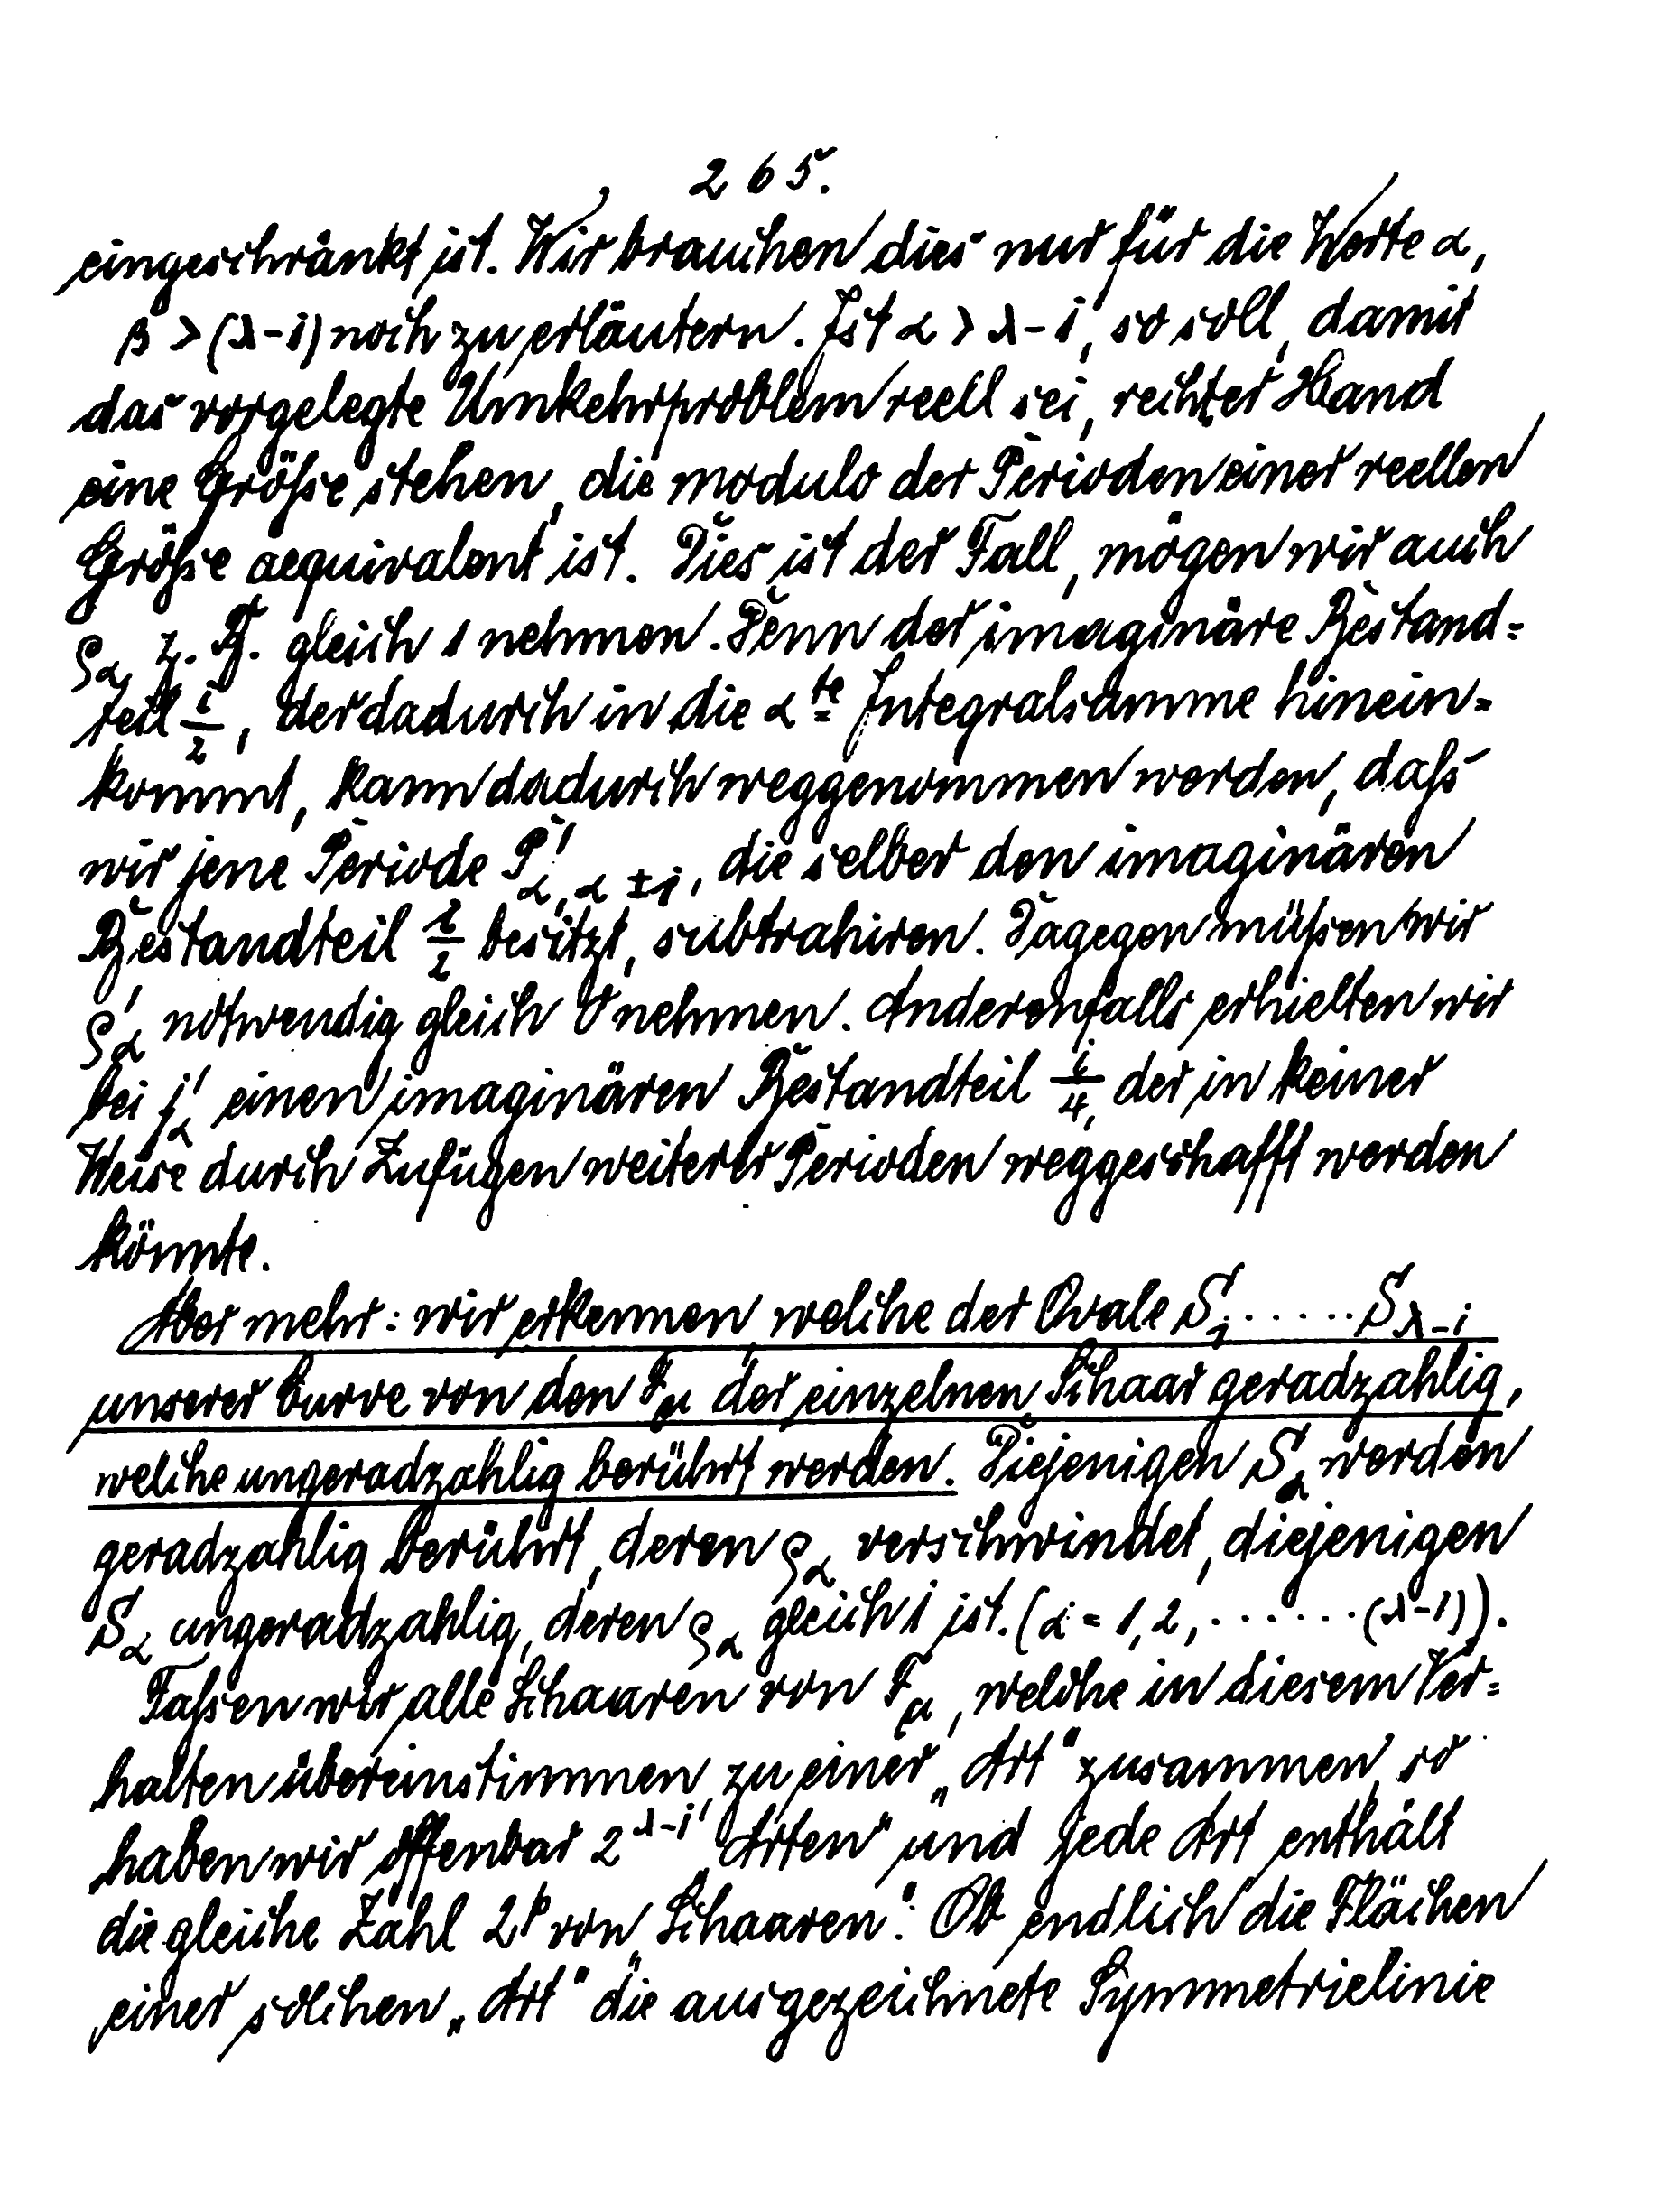 265.
eingeschränkt ist. Wir brauchen dies nur für die Werte α,
β > (λ-1) noch zu erläutern. Ist α > λ-1, so soll, damit
das vorgelegte Umkehrproblem reell sei, rechter Hand
eine Größe stehen, die modulo der Perioden einer reellen
Größe aequivalent ist. Dies ist der Fall, mögen wir auch
ρ_α z. B. gleich 1 nehmen. Denn der imaginäre Bestand=
teil i/2, der dadurch in die α te Integralsumme hinein=
kommt, kann dadurch weggenommen werden, daß
wir jene Periode P'_{α, α ± 1}, die selber den imaginären
Bestandteil i/2 besitzt, subtrahiren. Dagegen müßen wir
ρ'_α notwendig gleich 0 nehmen. Anderenfalls erhielten wir
bei j'_α einen imaginären Bestandteil i/4, der in keiner
Weise durch Zufügen weiterer Perioden weggeschafft werden
könnte.
Aber mehr: wir erkennen, welche der Ovale S_1 ...... S_{λ-1}
unserer Curve von den F_μ der einzelnen Schaar geradzahlig,
welche ungeradzahlig berührt werden. Diejenigen S_α werden
geradzahlig berührt, deren ρ_α verschwindet, diejenigen
S_α ungeradzahlig, deren ρ_α gleich 1 ist. (α = 1, 2, ...... (λ-1)).
Faßen wir alle Schaaren von F_μ, welche in diesem Ver=
halten übereinstimmen, zu einer „Art" zusammen, so
haben wir offenbar 2^{λ-1} „Arten" und jede Art enthält
die gleiche Zahl 2^p von „Schaaren". Ob endlich die Flächen
einer solchen „Art" die ausgezeichnete Symmetrielinie